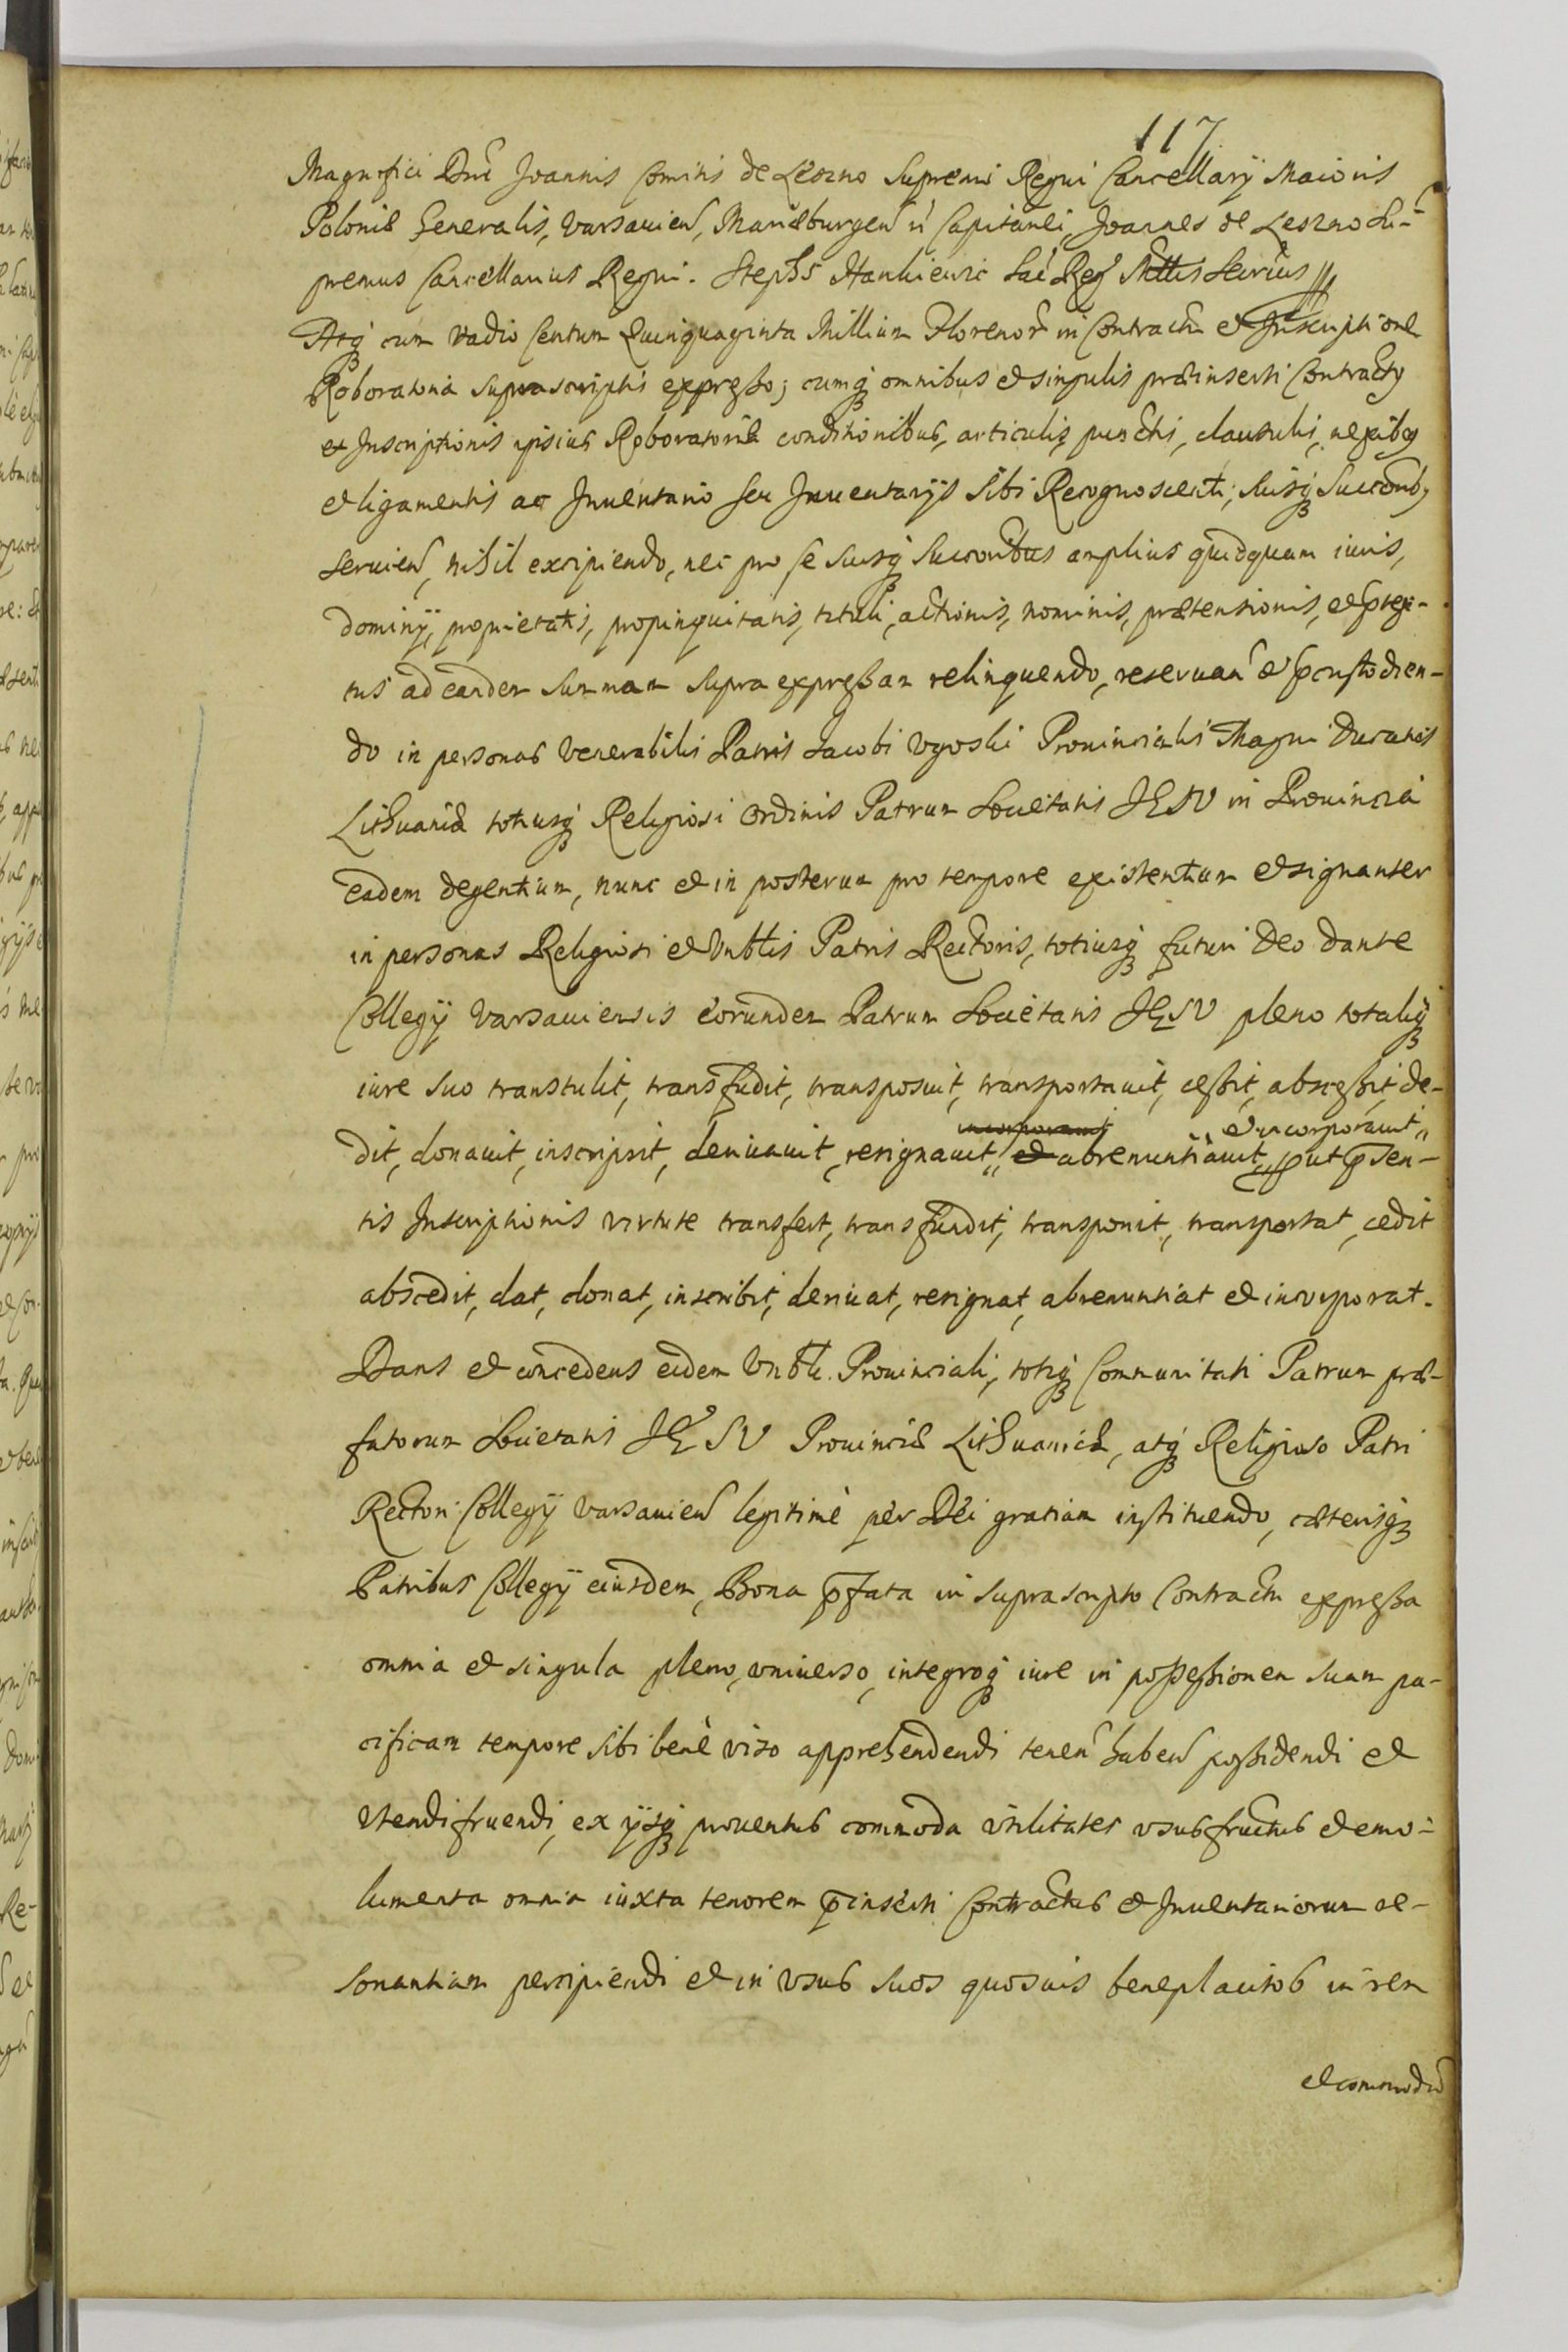 117.
Magnifici Dni Joannis Comitis de Leszno Supremi Regni Cancellarÿ Maioris
Poloniæ Generalis, Varsauien, Mariæburgen Capitanei, Joannes de Leszno Su-
premus Cancellarius Regni. Stephs Hankiewic Sac Reg Mttis Secrius
Atq cum vadio Centum Quinquaginta Millium Florenor in Contractu et Inscriptione
Roboratoria suprascriptis expresso; cumq omnibus et singulis præinserti Contractg
et Inscriptionis ipsius Roboratoriæ conditionibus, articulis, punctis, clausulis, nexibg
et ligamentis ac Inuentario seu Inuentarÿs sibi Recognoscenti, suisq Succorib,
seruien, nihil excipiendo, nec pro se suisq Succoribus amplius quidquam iuris,
dominÿ, proprietatis, propinquitatis, tituli, actionis, nominis, prætensionis, et ptex-
tus ad eandem summam supra expressam relinquendo, reseruan et pcustodien-
do in personas Venerabilis Patris Jacobi Ugoski Prouincialis Magni Ducatus
Lithuaniæ totiusq Religiosi Ordinis Patrum Societatis JESV in Prouincia
eadem degentium, nunc et in posterum pro tempore existentium et signanter
in personas Religiosi et Vnblis Patris Rectoris, totiusq futuri Deo dante
Collegÿ Varsauiensis eorundem Patrum Societatis JESV pleno totaliq
iure suo transtulit, transfudit, transposuit, transportauit, cessit, abscessit, de-
incorporauit et incorporauit
dit, donauit, inscripsit, deriuauit, resignauit, et abrenuntiauit, put psen-
tis Inscriptionis virtute transfert, transfundit, transponit, transportat, cedit
abscedit, dat, donat, inscribit, deriuat, resignat, abrenuntiat et incorporat.
Dans et concedens eidem Vnbli. Prouinciali, totiq Communitati Patrum præ-
fatorum Societatis JESV Prouinciæ Lithuaniæ, atq Religioso Patri
Rectori Collegÿ Varsauien legitimè per Dei gratiam instituendo, cæterisq
Patribus Collegÿ eiusdem, Bona pfata in suprascripto Contractu expressa
omnia et singula pleno, vniuerso, integroq iure in possessionem suam pa-
cificam tempore sibi benè viso apprehendendi tenen haben possidendi et
vtendifruendi, ex ÿsq prouentus commoda vtilitates vsusfructus et emo-
lumenta omnia iuxta tenorem pinserti Contractus et Inuentariorum re-
sonantiam percipiendi et in vsus suos quosuis beneplacitos in rem
et commodu